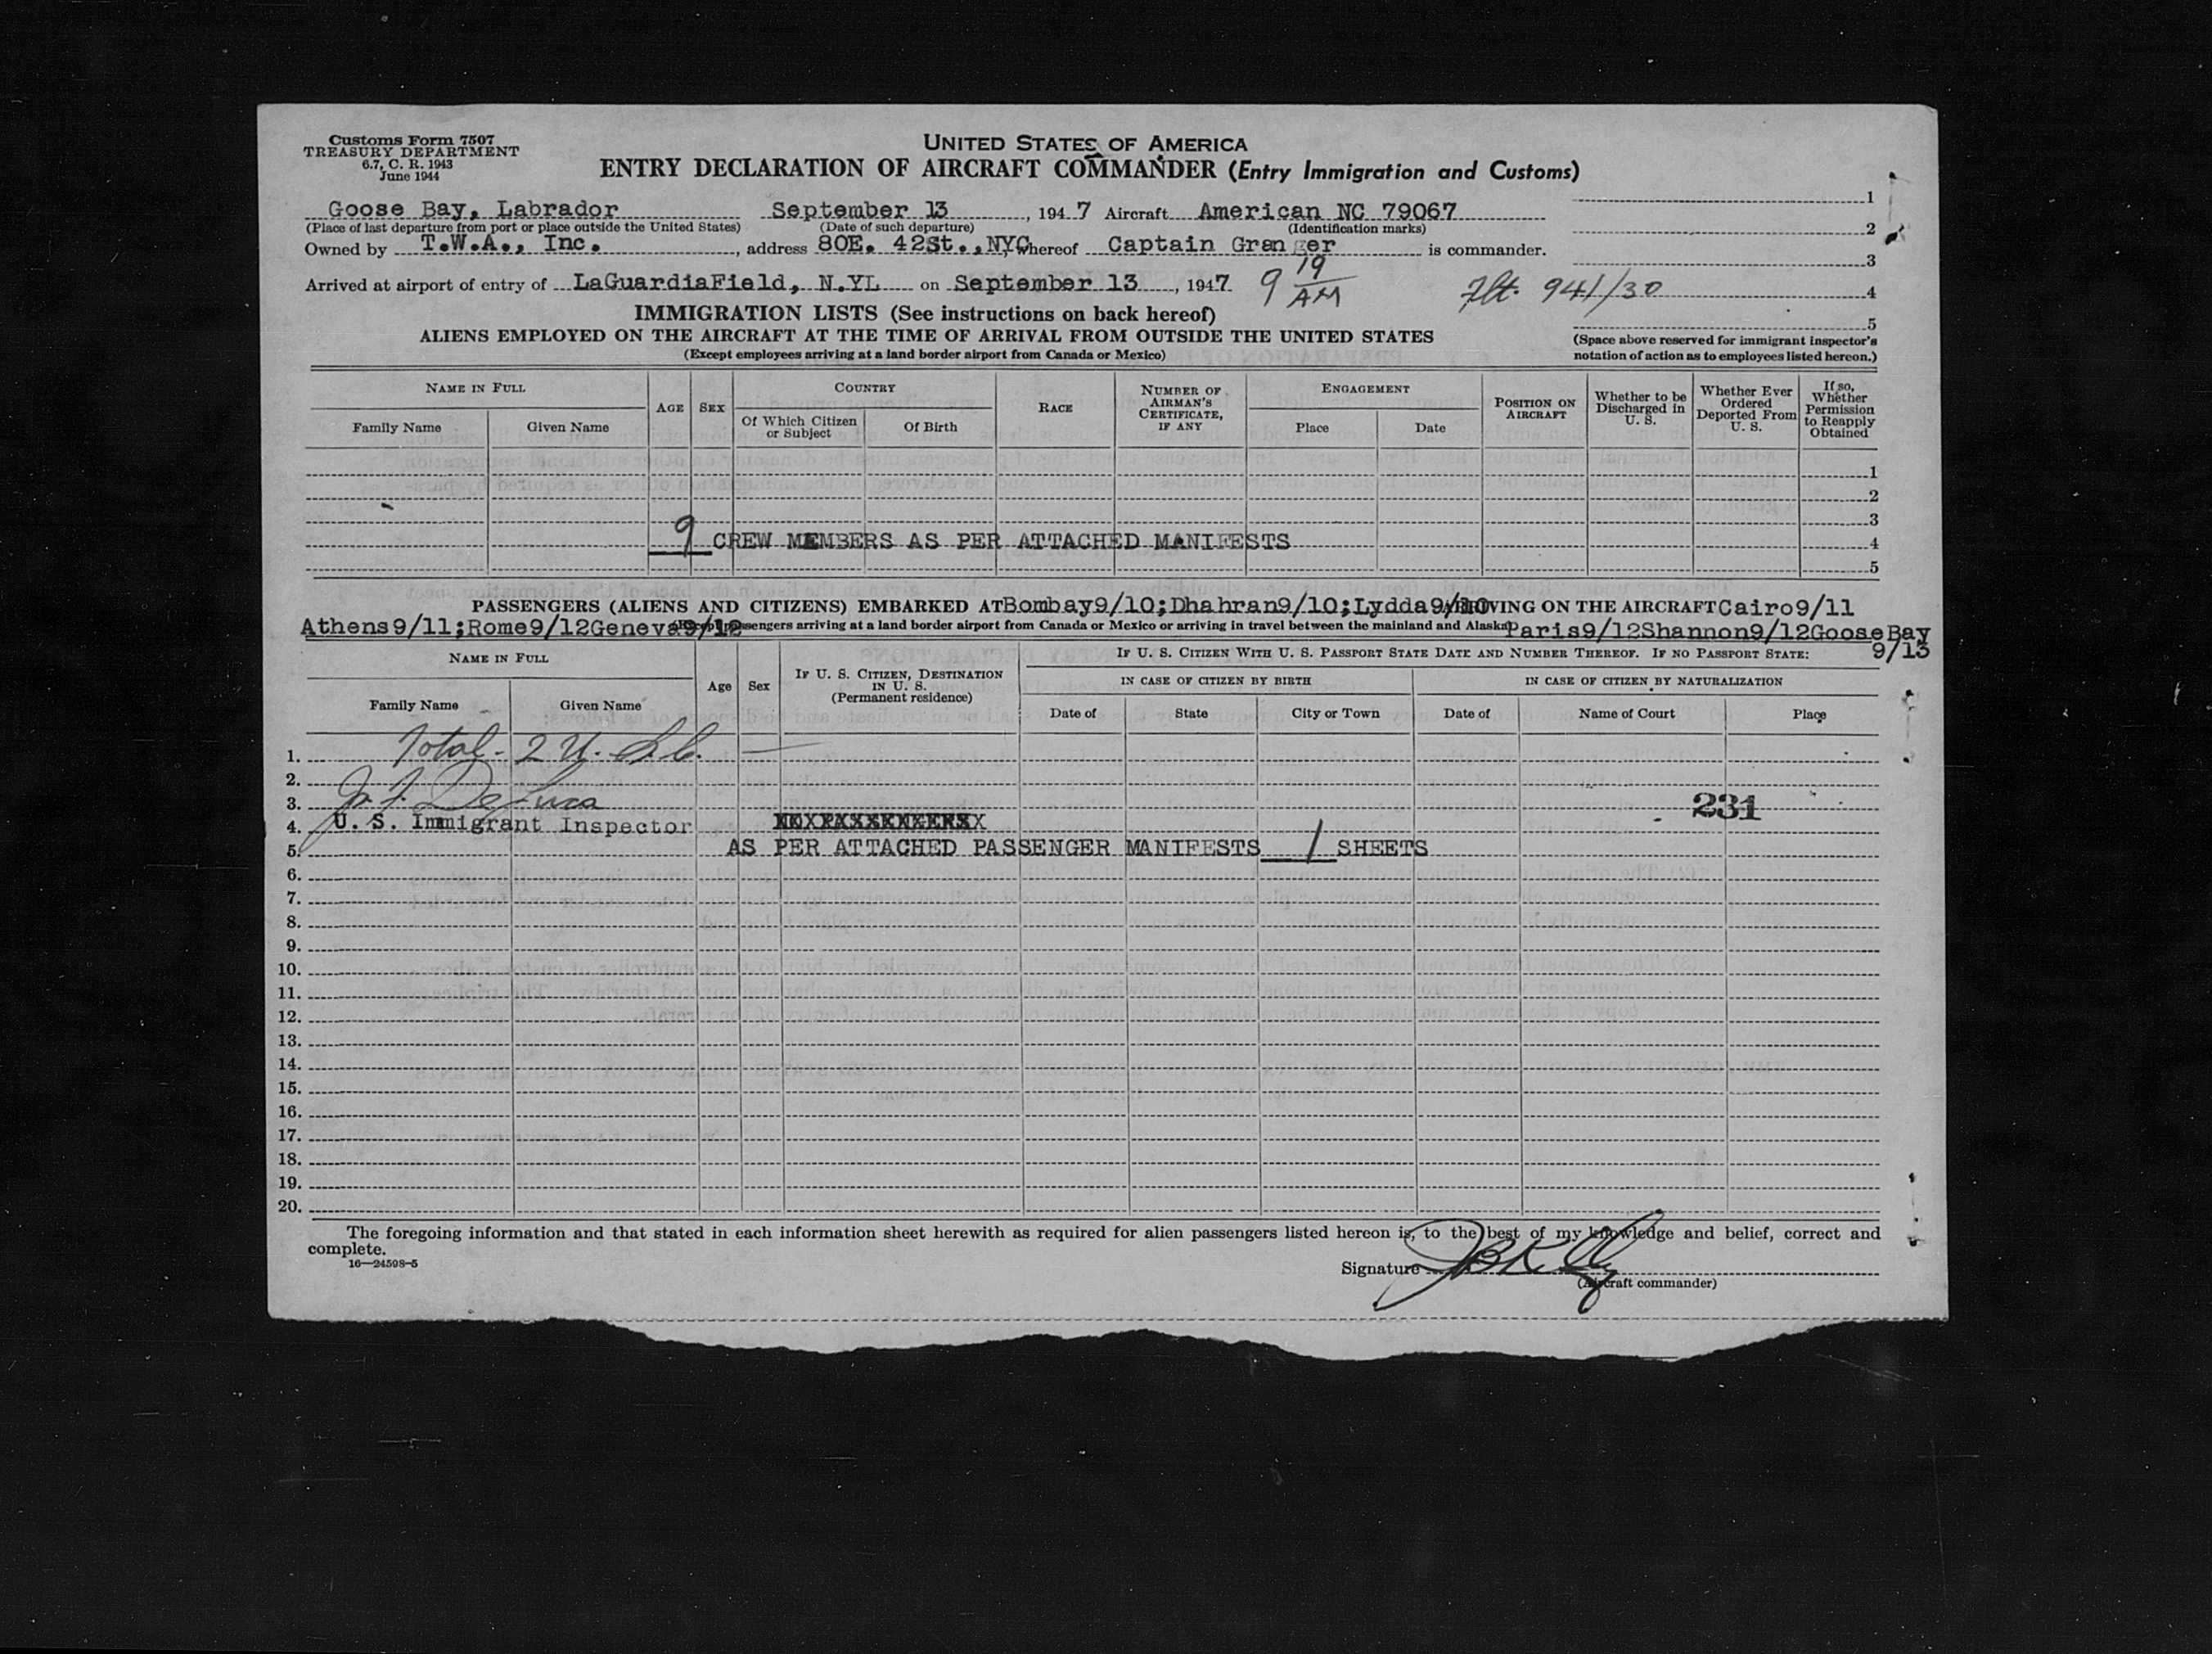 Customs Form 7507
TREASURY DEPARTMENT
6.7, C. R. 1943
June 1944
UNITED STATES OF AMERICA
ENTRY DECLARATION OF AIRCRAFT COMMANDER (Entry Immigration and Customs)
Goose Bay, Labrador September 13, 1947 Aircraft American NC 79067
(Place of last departure from port or place outside the United States) (Date of such departure) (Identification marks)
Owned by T.W.A., Inc., address 80E. 42St.,NYC whereof Captain Granger is commander.
Arrived at airport of entry of LaGuardiaField, N.YL on September 13, 1947 9 19 AM
Flt. 941/30
1
2
3
4
5
(Space above reserved for immigrant inspector's
notation of action as to employees listed hereon.)
IMMIGRATION LISTS (See instructions on back hereof)
ALIENS EMPLOYED ON THE AIRCRAFT AT THE TIME OF ARRIVAL FROM OUTSIDE THE UNITED STATES
(Except employees arriving at a land border airport from Canada or Mexico)
NAME IN FULL
Family Name Given Name
AGE SEX
COUNTRY
Of Which Citizen or Subject Of Birth
RACE
NUMBER OF AIRMAN'S CERTIFICATE, IF ANY
ENGAGEMENT
Place Date
POSITION ON AIRCRAFT
Whether to be Discharged in U. S.
Whether Ever Ordered Deported From U. S.
If so, Whether Permission to Reapply Obtained
1
2
3
9 CREW MEMBERS AS PER ATTACHED MANIFESTS 4
5
PASSENGERS (ALIENS AND CITIZENS) EMBARKED AT Bombay9/10;Dhahran9/10;Lydda9/10 ARRIVING ON THE AIRCRAFT Cairo9/11
Athens9/11;Rome9/12Geneva9/12 (Except passengers arriving at a land border airport from Canada or Mexico or arriving in travel between the mainland and Alaska) Paris9/12Shannon9/12GooseBay
9/13
NAME IN FULL
Family Name Given Name
Age Sex
IF U. S. CITIZEN, DESTINATION IN U. S. (Permanent residence)
IF U. S. CITIZEN WITH U. S. PASSPORT STATE DATE AND NUMBER THEREOF. IF NO PASSPORT STATE:
IN CASE OF CITIZEN BY BIRTH IN CASE OF CITIZEN BY NATURALIZATION
Date of State City or Town Date of Name of Court Place
1. Total- 2 U. S. C. —
2.
3. J. F. DeLuca 231
4. U. S. Immigrant Inspector
5. AS PER ATTACHED PASSENGER MANIFESTS 1 SHEETS
6.
7.
8.
9.
10.
11.
12.
13.
14.
15.
16.
17.
18.
19.
20.
The foregoing information and that stated in each information sheet herewith as required for alien passengers listed hereon is, to the best of my knowledge and belief, correct and
complete.
16—24598-5
Signature
(Aircraft commander)